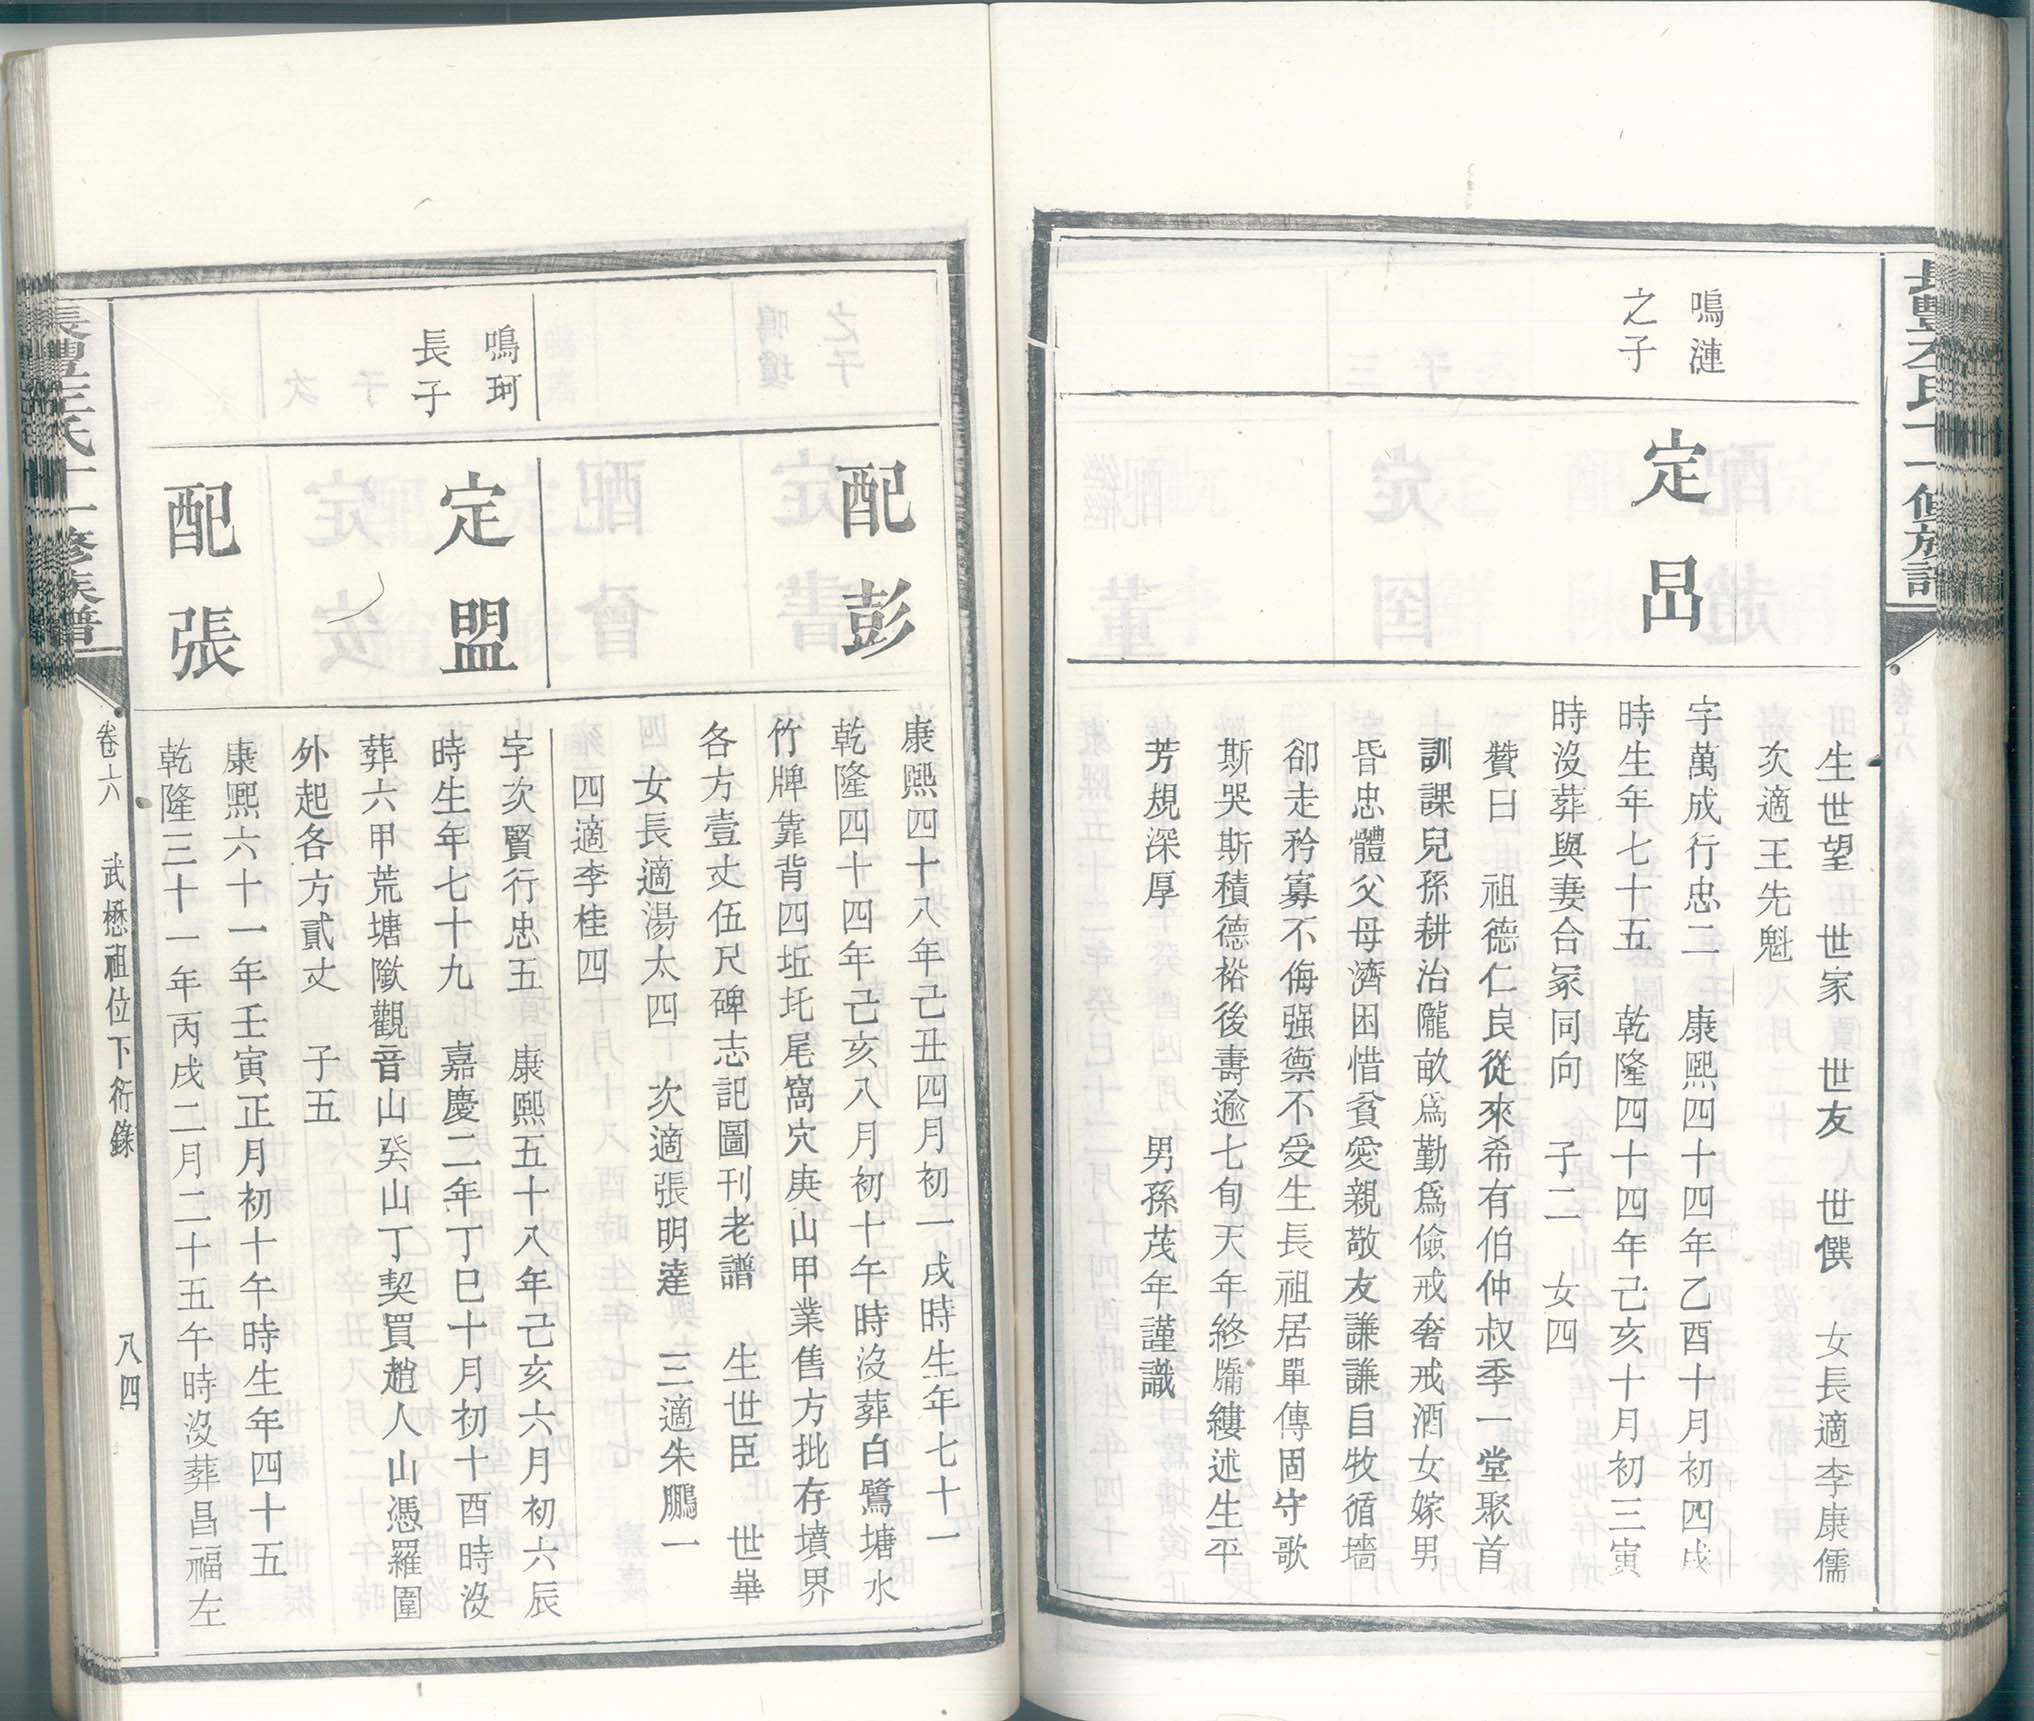 鳴漣
之子
定旵
生世望　世家　世友　世僎　女長適李康儒
次適王先魁
字萬成行忠二　康熙四十四年乙酉十月初四戌
時生年七十五　乾隆四十四年己亥十月初三寅
時沒葬與妻合冢同向　子二　女四
贊曰　祖德仁良從來希有伯仲叔季一堂聚首
訓課兒孫耕治隴畝爲勤爲儉戒奢戒酒女嫁男
昏忠體父母濟困惜貧愛親敬友謙謙自牧循墻
卻走矜寡不侮强禦不受生長祖居單傳固守歌
斯哭斯積德裕後壽逾七旬天年終牖縷述生平
芳規深厚　男孫茂年謹識
配彭
康熙四十八年己丑四月初一戌時生年七十一
乾隆四十四年己亥八月初十午時沒葬白鷺塘水
竹牌靠背四坵圫尾窩穴庚山甲業售方批存墳界
各方壹丈伍尺碑志記圖刊老譜　生世臣　世崋
女長適湯太四　次適張明達　三適朱鵬一
四適李桂四
鳴珂
長子
定盟
字次賢行忠五　康熙五十八年己亥六月初六辰
時生年七十九　嘉慶二年丁巳十月初十酉時沒
葬六甲荒塘墩觀音山癸山丁契買趙人山憑羅圍
外起各方貳丈　子五
配張
康熙六十一年壬寅正月初十午時生年四十五
乾隆三十一年丙戌二月二十五午時沒葬昌福左
卷六　武懋祖位下衍錄　八四